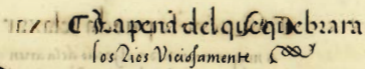 ¶ La pena del que quebrara
los Rios Viciosamente